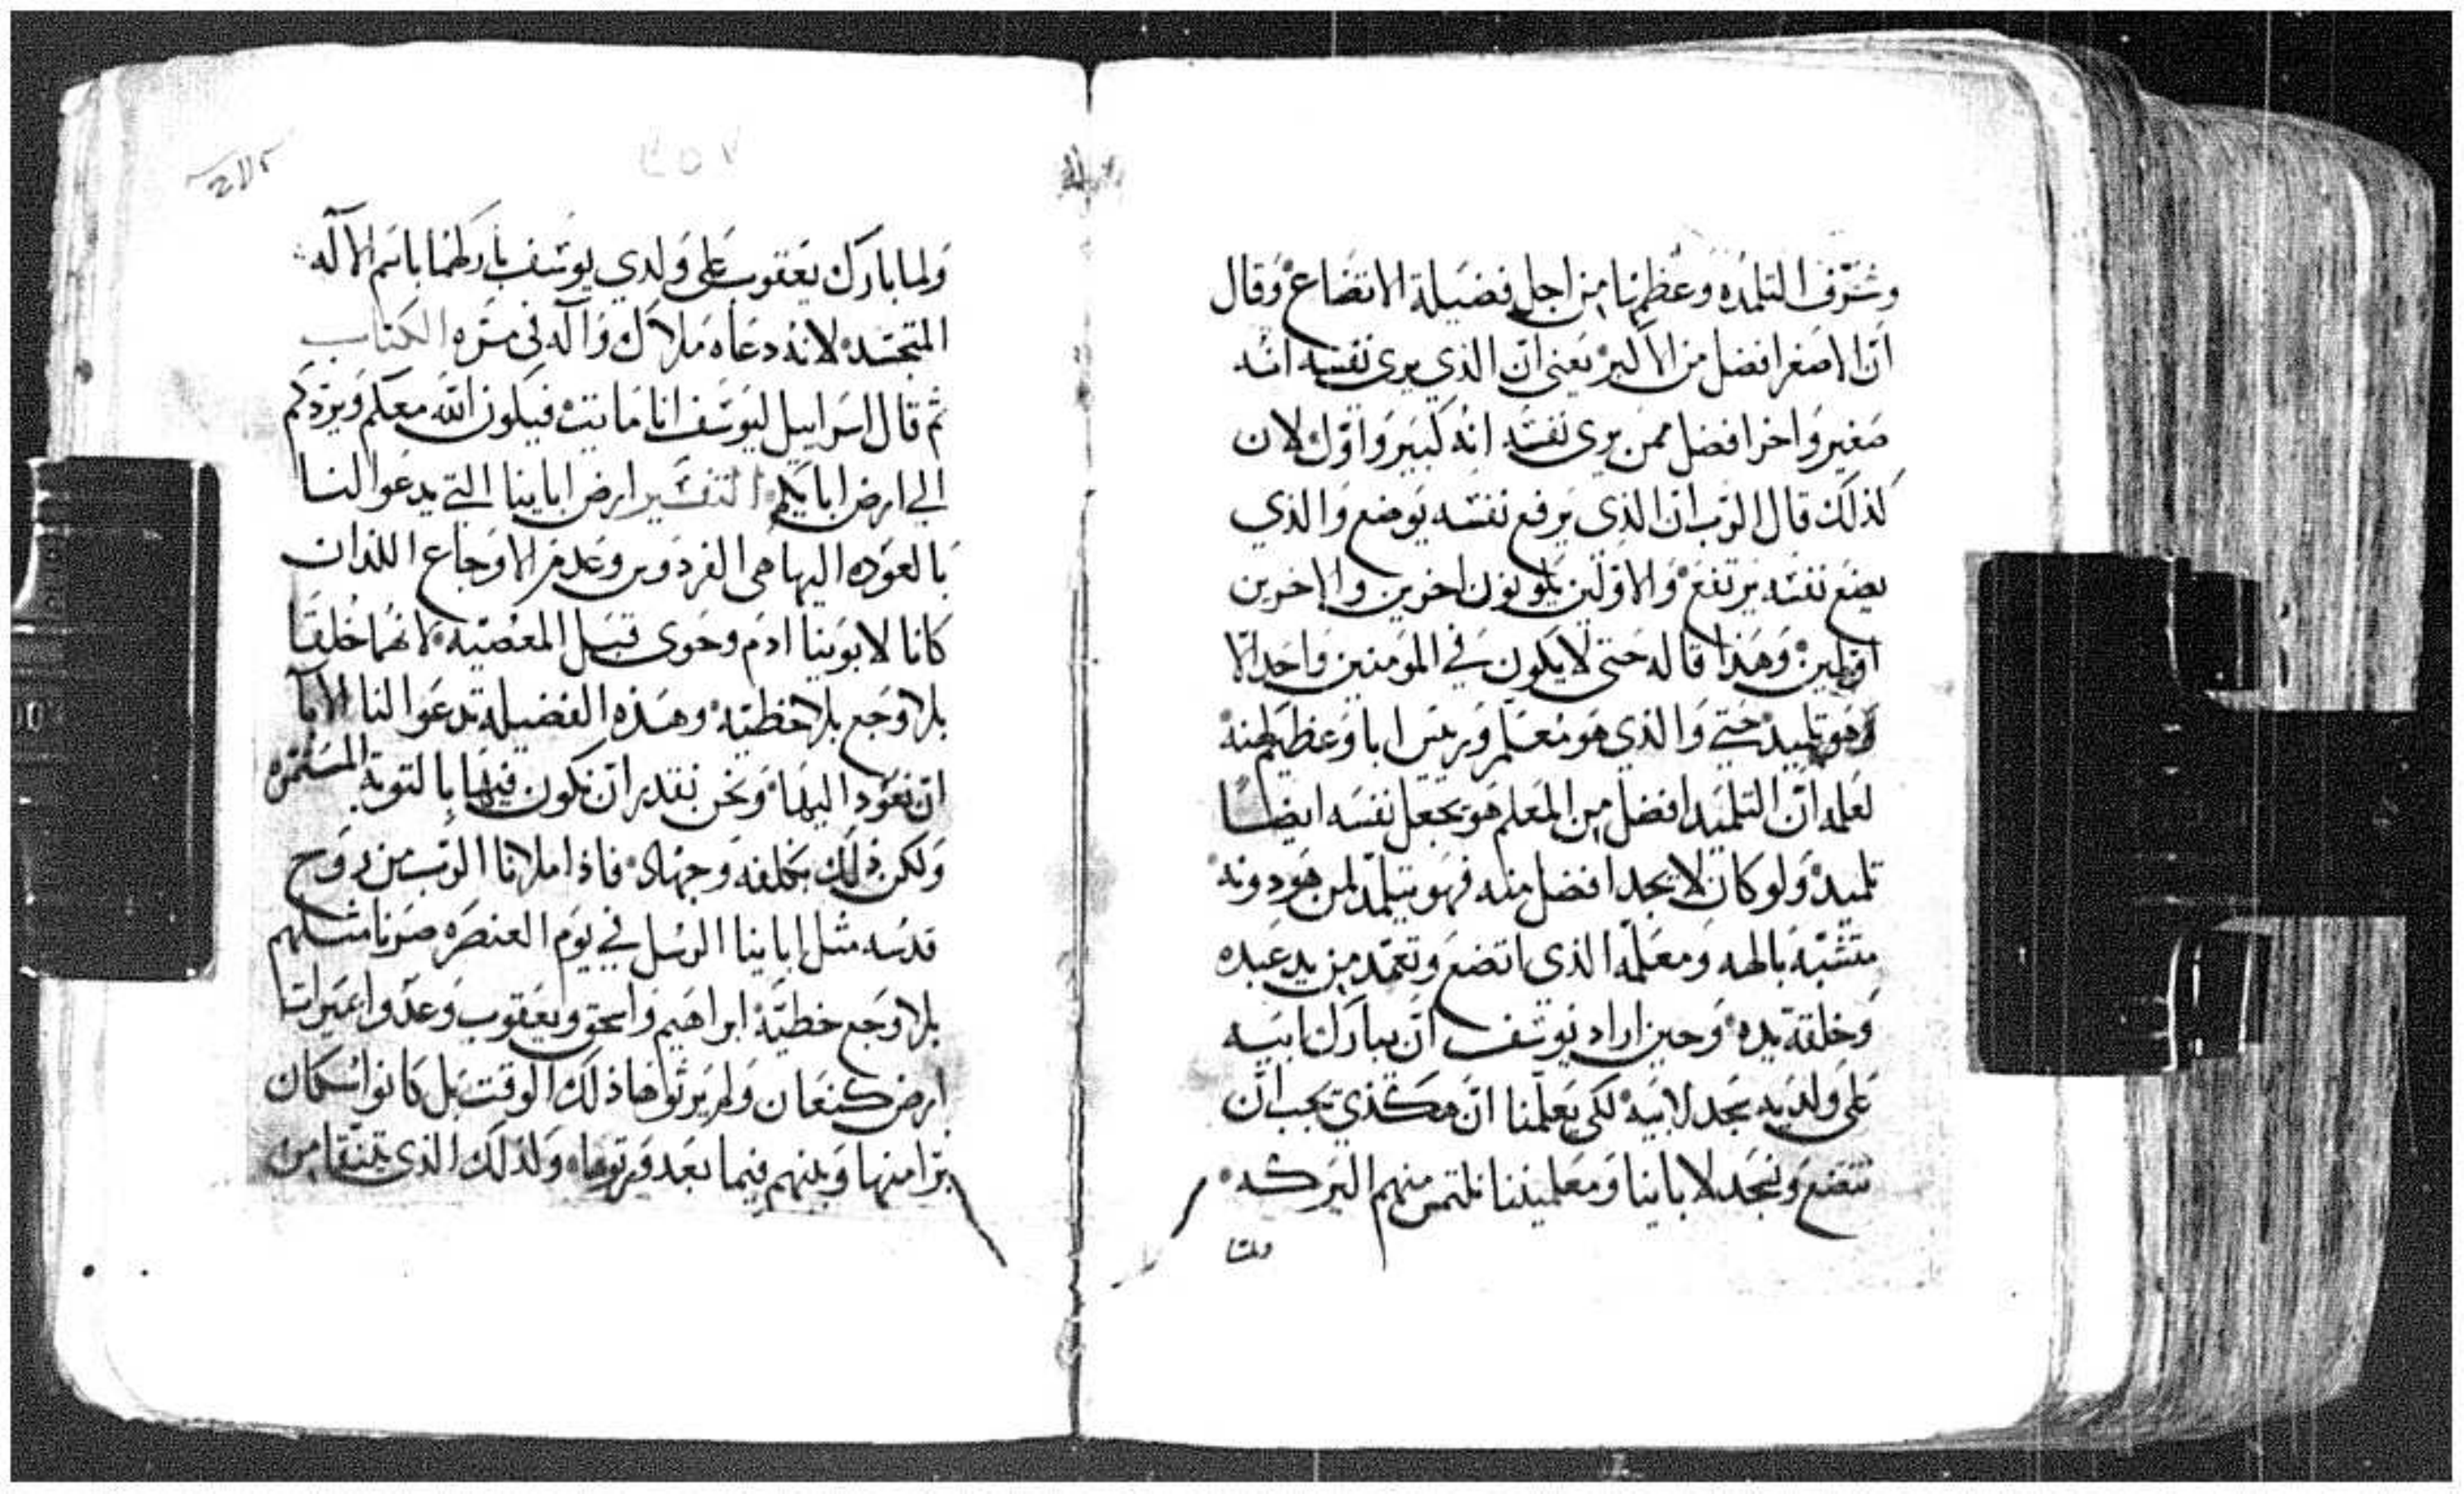 وشرف التلمده وعظمها من اجل فضيلة الاتضاع وقال
ان الاصغر افضل من الاكبر يعني ان الذي يرى نفسه انه
صغير واخر افضل ممن يرى نفسه انه كبير واول لان
لذلك قال الرب ان الذي يرفع نفسه يوضع والذي
يضع نفسه يرتفع والاولين يكونون اخرين والاخرين
اولين وهذا قاله حتى لا يكون في المومنين واحد الا
وهو تلميد حتي والذي هو معلم وريس ابا وعظيم
لعلمه ان التلميد افضل من المعلم هو يجعل نفسه ايضا
تلميد ولو كان لا يجد افضل منه فهو يتلمد لمن هو دونه
متشبه بالهه ومعلمه الذي اتضع وتعمد من يد عبده
وخلقة يده وحين اراد يوسف ان يبارك ابيه
على ولديه سجد لابيه لكي يعلمنا ان هكذي يجب ان
نتضع ونسجد لاباينا ومعلمينا نلتمس منهم البركه
ولما
ولما بارك يعقوب على ولدي يوسف باركهما باسم الاله
المتجسد لانه دعاه ملاك واله في مره الكتاب
ثم قال اسراييل ليوسف انا مايت فيكون الله معكم ويردكم
الي ارض ابايكم التفسير ارض اباينا التي يدعوا لنا
بالعوده اليها هي الفردوس وعدم الاوجاع اللذان
كانا لابوينا ادم وحوى قبل المعصيه لانهما خلقا
بلا وجع بلا خطيه وهذه الفضيله تدعوا لنا الابا
ان نعود اليها ونحن نقدر ان نكون فيها بالتوبة المستمره
ولكن ذلك بكلفه وجهاد فاذا ملانا الرب من روح
قدسه مثل اباينا الرسل في يوم العنصره صرنا مثلهم
بلا وجع خطية ابراهيم واسحق ويعقوب وعدوا بميرات
ارض كنعان ولم يرثوها ذلك الوقت بل كانوا سكان
برا منها وبنيهم فيما بعد ورثوها ولذلك الذي يتنقا من